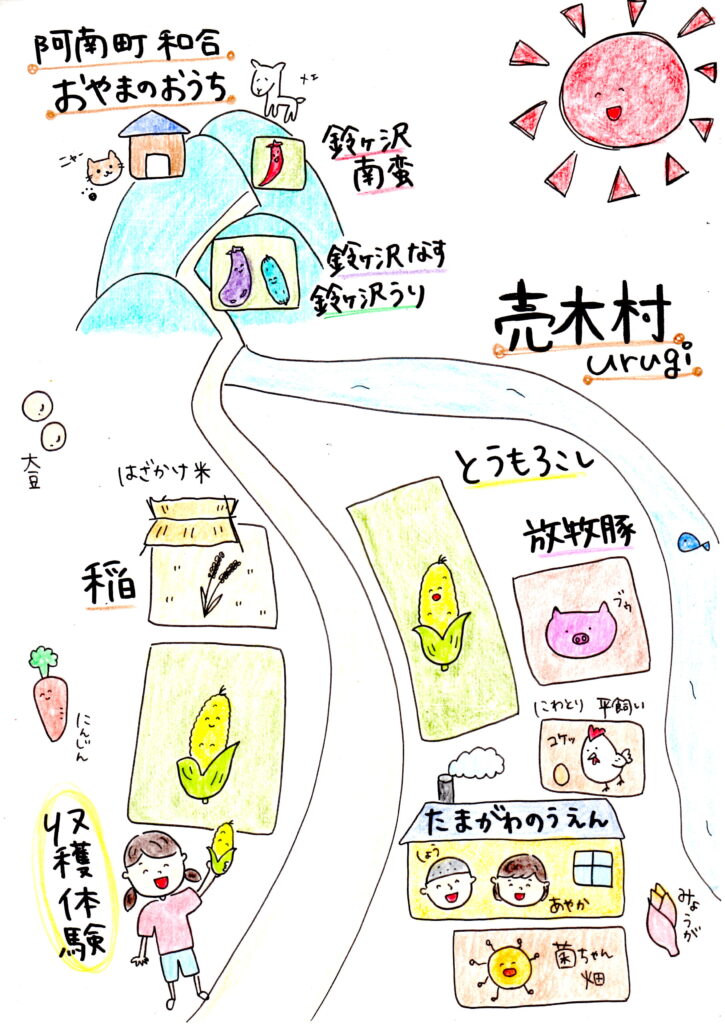 阿南町 和合
おやまのおうち
メェ
ニャー
鈴ヶ沢
南蛮
鈴ヶ沢なす
鈴ヶ沢うり
売木村
urugi
大豆
はざかけ米
稲
とうもろこし
放牧豚
ブゥ
にんじん
にわとり 平飼い
コケッ
収穫体験
たまがわのうえん
しょう
あやか
みょうが
菌ちゃん
畑